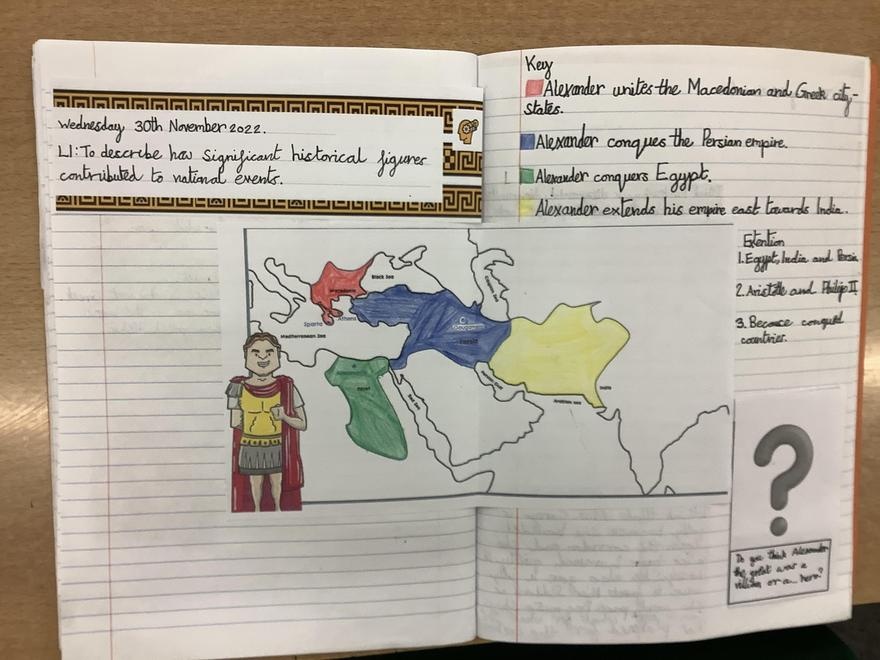 Wednesday 30th November 2022.
LI: To describe how significant historical figures
contributed to national events.
Key
Alexander unites the Macedonian and Greek city-
states.
Alexander conques the Persian empire.
Alexander conquers Egypt.
Alexander extends his empire east towards India.
Black Sea
Macedonia
Athens
Sparta
Mediterranean Sea
Persia
Egypt
Red Sea
Arabian Sea
India
Extention
1. Egypt, India and Persia
2. Aristotle and Philip II
3. Because conqued
countries.
?
Do you think Alexander
the great was a
villian or a hero?